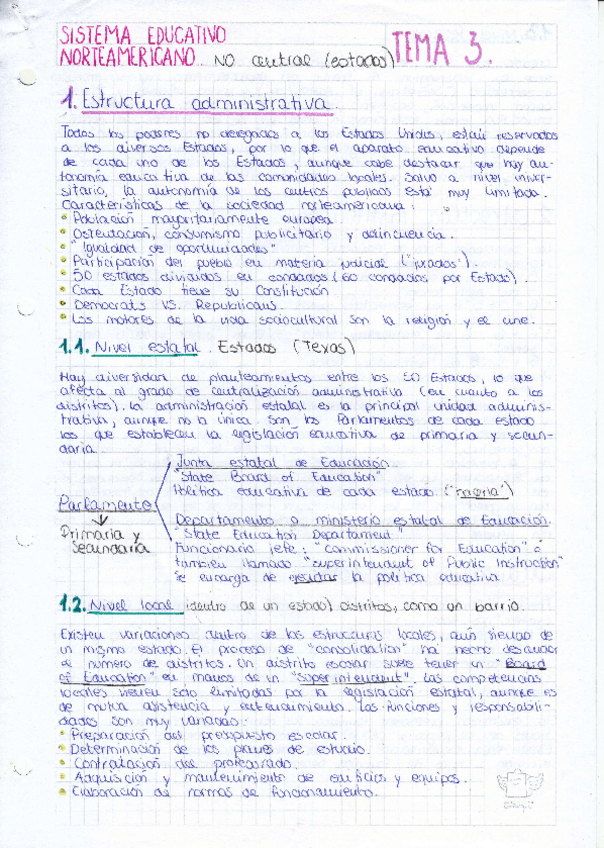 SISTEMA EDUCATIVO
NORTEAMERICANO. NO central (estados) TEMA 3.
1. Estructura administrativa.
Todos los poderes no delegados a los Estados Unidos, están reservados
a los diversos Estados, por lo que el aparato educativo depende
de cada uno de los Estados, aunque cabe destacar que hay au-
tonomía educativa de las comunidades locales. Salvo a nivel univer-
sitario, la autonomía de los centros públicos está muy limitada.
Características de la sociedad norteamericana:
Población mayoritariamente europea.
Ostentación, consumismo publicitario y delincuencia.
"Igualdad de oportunidades"
Participación del pueblo en materia judicial ("jurados").
50 estados divididos en condados (60 condados por Estado).
Cada Estado tiene su Constitución
Democrats VS. Republicans.
Los motores de la vida sociocultural son la religión y el cine.
1.1. Nivel estatal. Estados (Texas)
Hay diversidad de planteamientos entre los 50 Estados, lo que
afecta al grado de centralización administrativa (en cuanto a los
distritos). La administración estatal es la principal unidad adminis-
trativa, aunque no la única. Son los Parlamentos de cada estado
los que establecen la legislación educativa de primaria y secun-
daria.
Junta estatal de Educación
"State Board of Education"
Política educativa de cada estado ("teoría")
Parlamento
Departamento o ministerio estatal de Educación.
Primaria y
Secundaria
"State Education Departament"
Funcionario jefe: "commissioner for Education" o
también llamado "superintendent of Public Instruction"
Se encarga de ejecutar la política educativa
1.2. Nivel local (dentro de un estado) distritos, como un barrio.
Existen variaciones dentro de las estructuras locales, aún siendo de
un mismo estado. El proceso de "consolidation" ha hecho descender
el número de distritos. Un distrito escolar suele tener un "Board
of Education" en manos de un "Superintendent". Las competencias
locales vienen sólo limitadas por la legislación estatal, aunque es
de mutua asistencia y entendimiento. Las funciones y responsabili-
dades son muy variadas:
Preparación del presupuesto escolar.
Determinación de los planes de estudio.
Contratación del profesorado.
Adquisición y mantenimiento de edificios y equipos.
Elaboración de normas de funcionamiento.